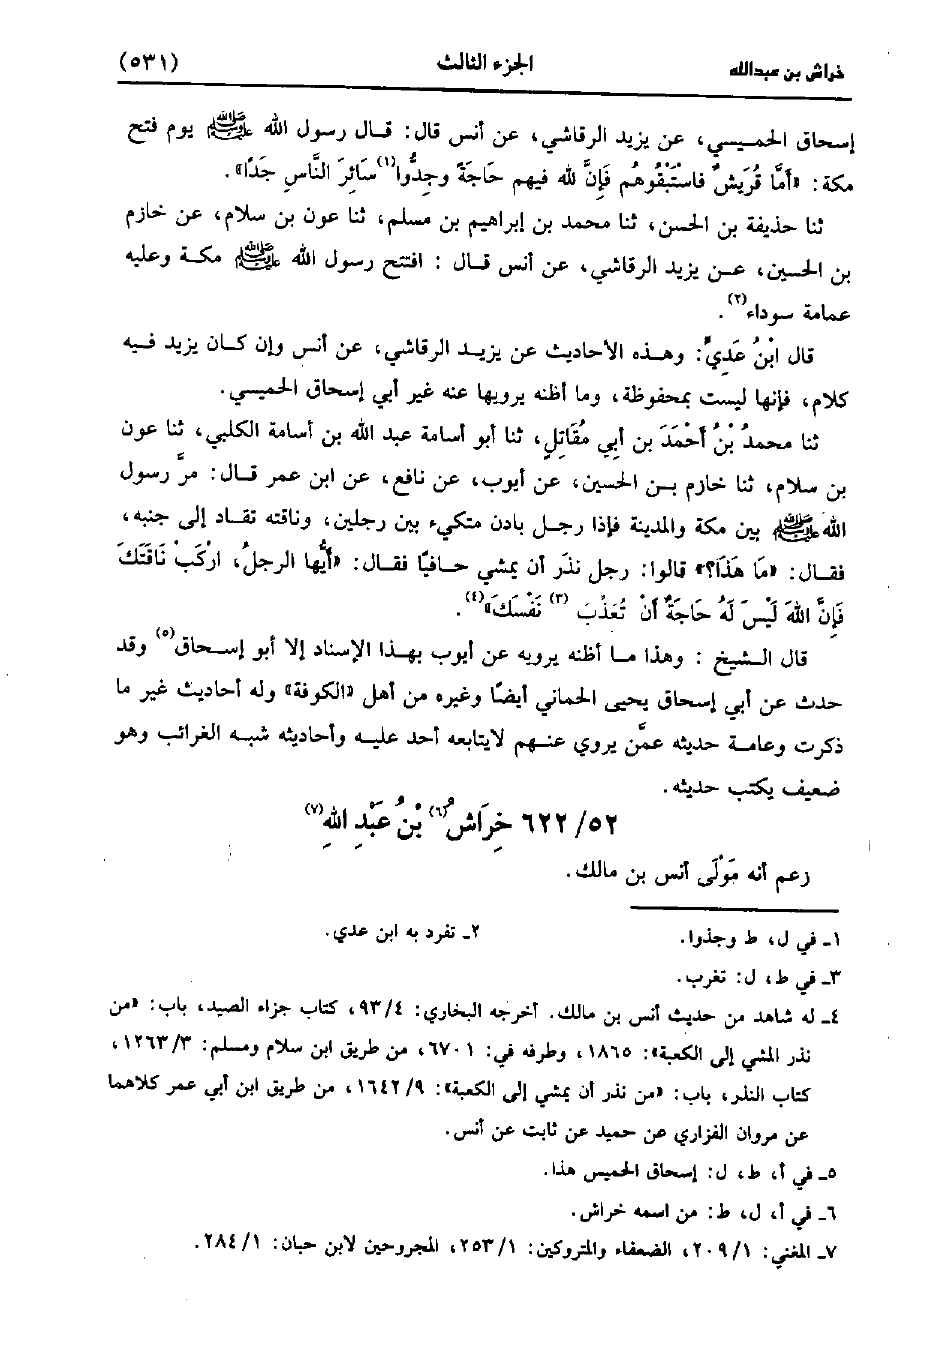 خراش بن عبدالله الجزء الثالث (٥٣١)
إسحاق الحميسي، عن يزيد الرقاشي، عن أنس قال: قال رسول الله ﷺ يوم فتح
مكة: «أَمَّا قُرَيْشٌ فاسْتَبْقُوهُم فَإِنَّ لله فيهم حَاجَةً وجِدُّوا(١) سَائِرَ النَّاسِ جَدًا».
ثنا حذيفة بن الحسن، ثنا محمد بن إبراهيم بن مسلم، ثنا عون بن سلام، عن خازم
بن الحسين، عن يزيد الرقاشي، عن أنس قال : افتتح رسول الله ﷺ مكة وعليه
عمامة سوداء(٢).
قال ابْنُ عَدِيٍّ: وهذه الأحاديث عن يزيد الرقاشي، عن أنس وإن كان يزيد فيه
كلام، فإنها ليست بمحفوظة، وما أظنه يرويها عنه غير أبي إسحاق الحميسي.
ثنا محمدُ بْنُ أَحْمَدَ بن أبي مُقَاتِلٍ، ثنا أبو أسامة عبد الله بن أسامة الكلبي، ثنا عون
بن سلام، ثنا خازم بن الحسين، عن أيوب، عن نافع، عن ابن عمر قال: مرَّ رسول
الله ﷺ بين مكة والمدينة فإذا رجل بادن متكيء بين رجلين، وناقته تقاد إلى جنبه،
فقال: «مَا هَذَا؟» قالوا: رجل نذَر أن يمشي حافيًا فقال: «أَيُّها الرجلُ، ارْكَبْ نَاقَتَكَ
فَإِنَّ اللهَ لَيْسَ لَهُ حَاجَةٌ أَنْ تُعَذِّبَ (٣) نَفْسَكَ»(٤).
قال الشيخ : وهذا ما أظنه يرويه عن أيوب بهذا الإسناد إلا أبو إسحاق(٥) وقد
حدث عن أبي إسحاق يحيى الحماني أيضًا وغيره من أهل «الكوفة» وله أحاديث غير ما
ذكرت وعامة حديثه عمَّن يروي عنهم لايتابعه أحد عليه وأحاديثه شبه الغرائب وهو
ضعيف يكتب حديثه.
٦٢٢/٥٢ خِرَاشُ(٦) بْنُ عَبْدِ اللهِ(٧)
زعم أنه مَوْلَى أنس بن مالك.
١ـ في ل، ط وجذوا. ٢ـ تفرد به ابن عدي.
٣ـ في ط، ل: تغرب.
٤ـ له شاهد من حديث أنس بن مالك. أخرجه البخاري: ٩٣/٤، كتاب جزاء الصيد، باب: «من
نذر المشي إلى الكعبة»: ١٨٦٥، وطرفه في: ٦٧٠١، من طريق ابن سلام ومسلم: ١٢٦٣/٣،
كتاب النذر، باب: «من نذر أن يمشي إلى الكعبة»: ١٦٤٢/٩، من طريق ابن أبي عمر كلاهما
عن مروان الفزاري عن حميد عن ثابت عن أنس.
٥ـ في أ، ط، ل: إسحاق الحميس هذا.
٦ـ في أ، ل، ط: من اسمه خراش.
٧ـ المغني: ٢٠٩/١، الضعفاء والمتروكين: ٢٥٣/١، المجروحين لابن حبان: ٢٨٤/١.